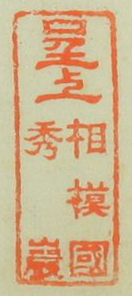 星上
相模國
秀巖